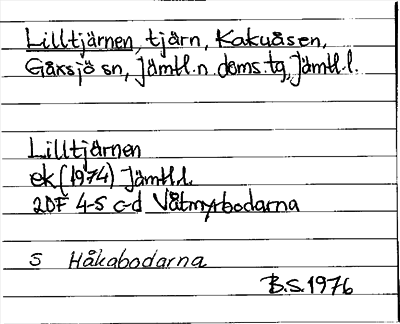 Lilltjärnen, tjärn, Kakuåsen,
Gåxsjö sn, Jämtl.n. doms.tg, Jämtl.l.
Lilltjärnen
ek (1974) Jämtl.l.
20F 4-5 c-d Våtmyrbodarna
S Håkabodarna
B.S. 1976